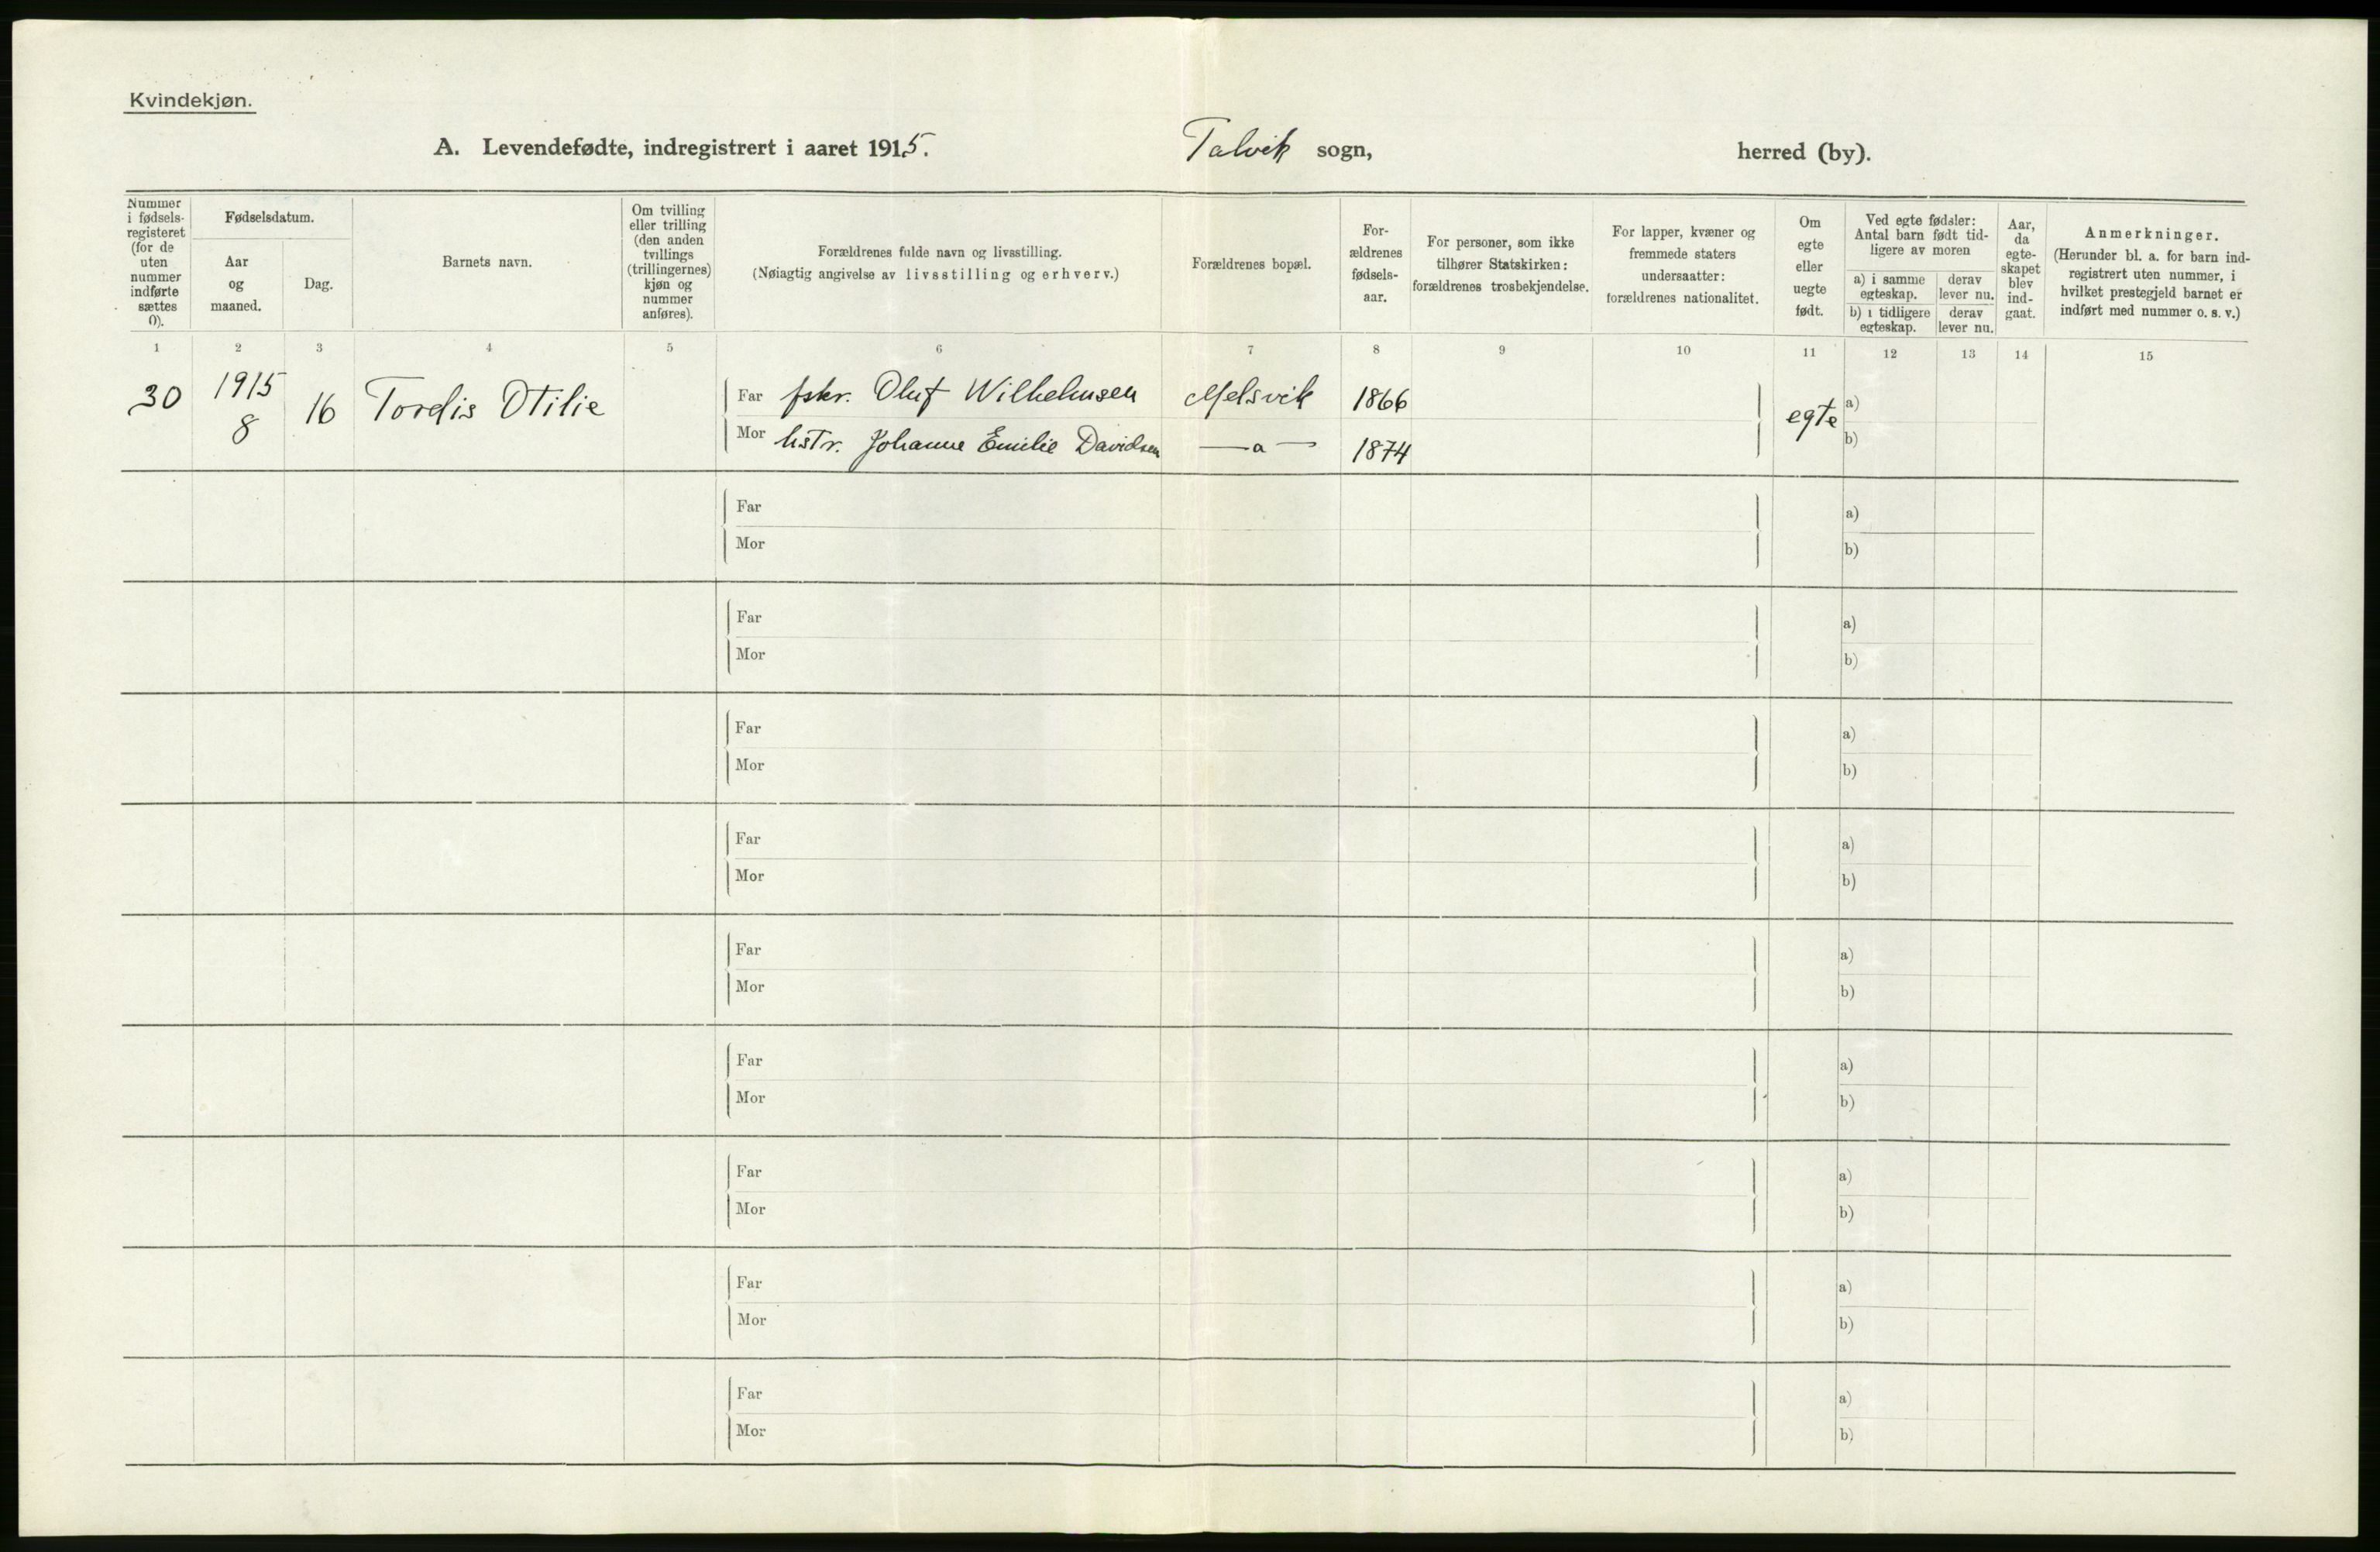 Kvindekjøn.
A. Levendefødte, indregistrert i aaret 1915. Talvik sogn, herred (by).
Nummer i fødsels-registeret (for de uten nummer indførte sættes 0).
Fødselsdatum.
Aar og maaned.
Dag.
Barnets navn.
Om tvilling eller trilling (den anden tvillings (trillingernes) kjøn og nummer anføres).
Forældrenes fulde navn og livsstilling.
(Nøiagtig angivelse av livsstilling og erhverv.)
Forældrenes bopæl.
For-ældrenes fødsels-aar.
For personer, som ikke tilhører Statskirken: forældrenes trosbekjendelse.
For lapper, kvæner og fremmede staters undersaatter: forældrenes nationalitet.
Om egte eller uegte født.
Ved egte fødsler: Antal barn født tid-ligere av moren
a) i samme egteskap.
derav lever nu.
b) i tidligere egteskap.
derav lever nu.
Aar, da egte-skapet blev ind-gaat.
Anmerkninger.
(Herunder bl. a. for barn ind-registrert uten nummer, i hvilket prestegjeld barnet er indført med nummer o. s. v.)
1 2 3 4 5 6 7 8 9 10 11 12 13 14 15
30 1915 8 16 Tordis Otilie Far fskr. Oluf Wilhelmsen Melsvik 1866 egte a)
Mor hstr. Johanne Emilie Davidsen —a— 1874 b)
Far a)
Mor b)
Far a)
Mor b)
Far a)
Mor b)
Far a)
Mor b)
Far a)
Mor b)
Far a)
Mor b)
Far a)
Mor b)
Far a)
Mor b)
Far a)
Mor b)